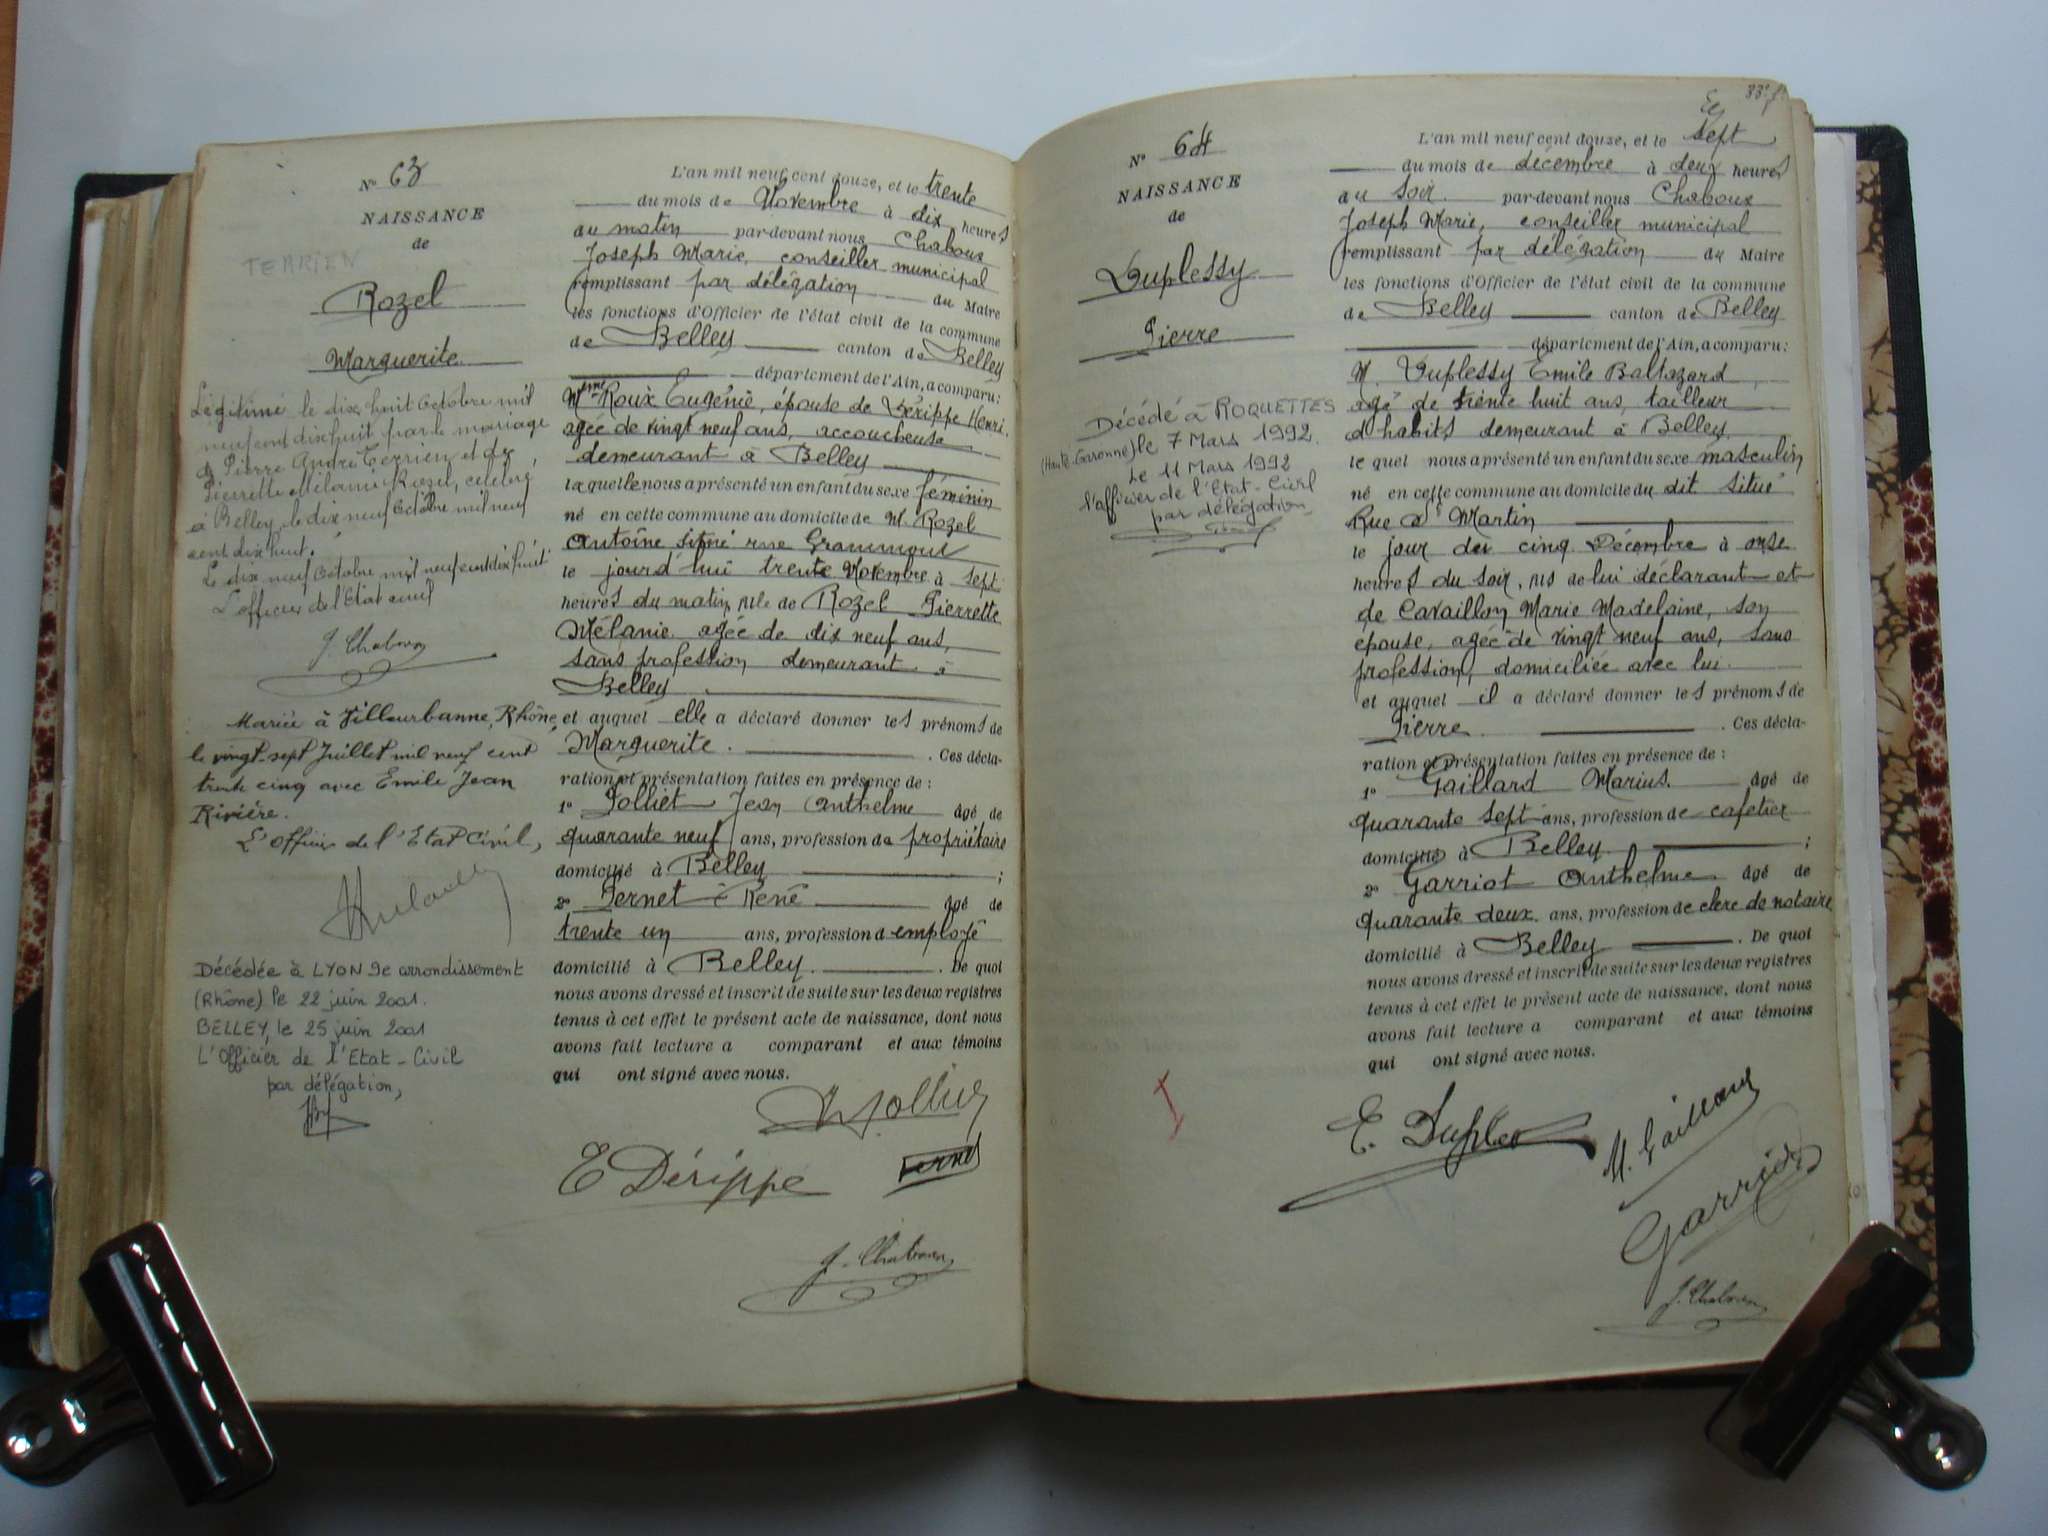 N° 63
NAISSANCE
de
TERRIEN
Rozel
Marguerite
Légitimé le dix huit Octobre mil
neuf cent dix huit par le mariage
de Pierre André Terrien et de
Pierrette Mélanie Rozel, célébré
à Belley, le dix neuf Octobre mil neuf
cent dix huit.
Le dix neuf Octobre mil neuf cent dix huit
L'officier de l'Etat civil
J. Chaboux
Mariée à Villeurbanne, Rhône,
le vingt-sept Juillet mil neuf cent
trente cinq avec Emile Jean
Rivière.
L'Officier de l'Etat Civil,
Décédée à LYON 9e arrondissement
(Rhône) le 22 juin 2001.
BELLEY, le 25 juin 2001
L'Officier de l'Etat-Civil
par délégation,
L'an mil neuf cent douze, et le trente
du mois de Novembre à dix heures
du matin par-devant nous Chaboux
Joseph Marie, conseiller municipal
remplissant par délégation du Maire
les fonctions d'Officier de l'état civil de la commune
de Belley canton de Belley
département de l'Ain, a comparu:
Mme Roux Eugénie, épouse de Dérippe Henri,
agée de vingt neuf ans, accoucheuse
demeurant à Belley
laquelle nous a présenté un enfant du sexe féminin
né en cette commune au domicile de M. Rozel
Antoine, situé rue Grammont
le jourd'hui trente Novembre à sept
heures du matin, fille de Rozel Pierrette
Mélanie agée de dix neuf ans,
sans profession demeurant à
Belley
et auquel elle a déclaré donner les prénoms de
Marguerite. Ces décla-
ration et présentation faites en présence de :
1° Jolliet Jean Anthelme âgé de
quarante neuf ans, profession de propriétaire
domicilié à Belley ;
2° Pernet René âgé de
trente un ans, profession d employé
domicilié à Belley. De quoi
nous avons dressé et inscrit de suite sur les deux registres
tenus à cet effet le présent acte de naissance, dont nous
avons fait lecture a comparant et aux témoins
qui ont signé avec nous.
Jolliet
E Dérippe
Pernet
J. Chaboux
33e f.
N° 64
NAISSANCE
de
Duplessy
Pierre
Décédé à ROQUETTES
(Haute-Garonne) le 7 Mars 1992.
Le 11 Mars 1992
l'officier de l'Etat-Civil
par délégation
L'an mil neuf cent douze, et le sept
du mois de décembre à deux heures
du soir par-devant nous Chaboux
Joseph Marie, conseiller municipal
remplissant par délégation du Maire
les fonctions d'Officier de l'état civil de la commune
de Belley canton de Belley
département de l'Ain, a comparu:
M. Duplessy Emile Baltazard,
agé de trente huit ans, tailleur
d'habits demeurant à Belley
le quel nous a présenté un enfant du sexe masculin
né en cette commune au domicile du dit situé
Rue St Martin
le jour du cinq Décembre à onze
heures du soir, fils de lui déclarant et
de Cavaillon Marie Madelaine, son
épouse, agée de vingt neuf ans, sans
profession, domiciliée avec lui.
et auquel il a déclaré donner les prénoms de
Pierre. Ces décla-
ration et présentation faites en présence de :
1° Gaillard Marius. âgé de
quarante sept ans, profession de cafetier
domicilié à Belley ;
2° Garriot Anthelme âgé de
quarante deux ans, profession de clerc de notaire
domicilié à Belley. De quoi
nous avons dressé et inscrit de suite sur les deux registres
tenus à cet effet le présent acte de naissance, dont nous
avons fait lecture a comparant et aux témoins
qui ont signé avec nous.
E. Duples
M. Gaillard
Garriot
J. Chaboux